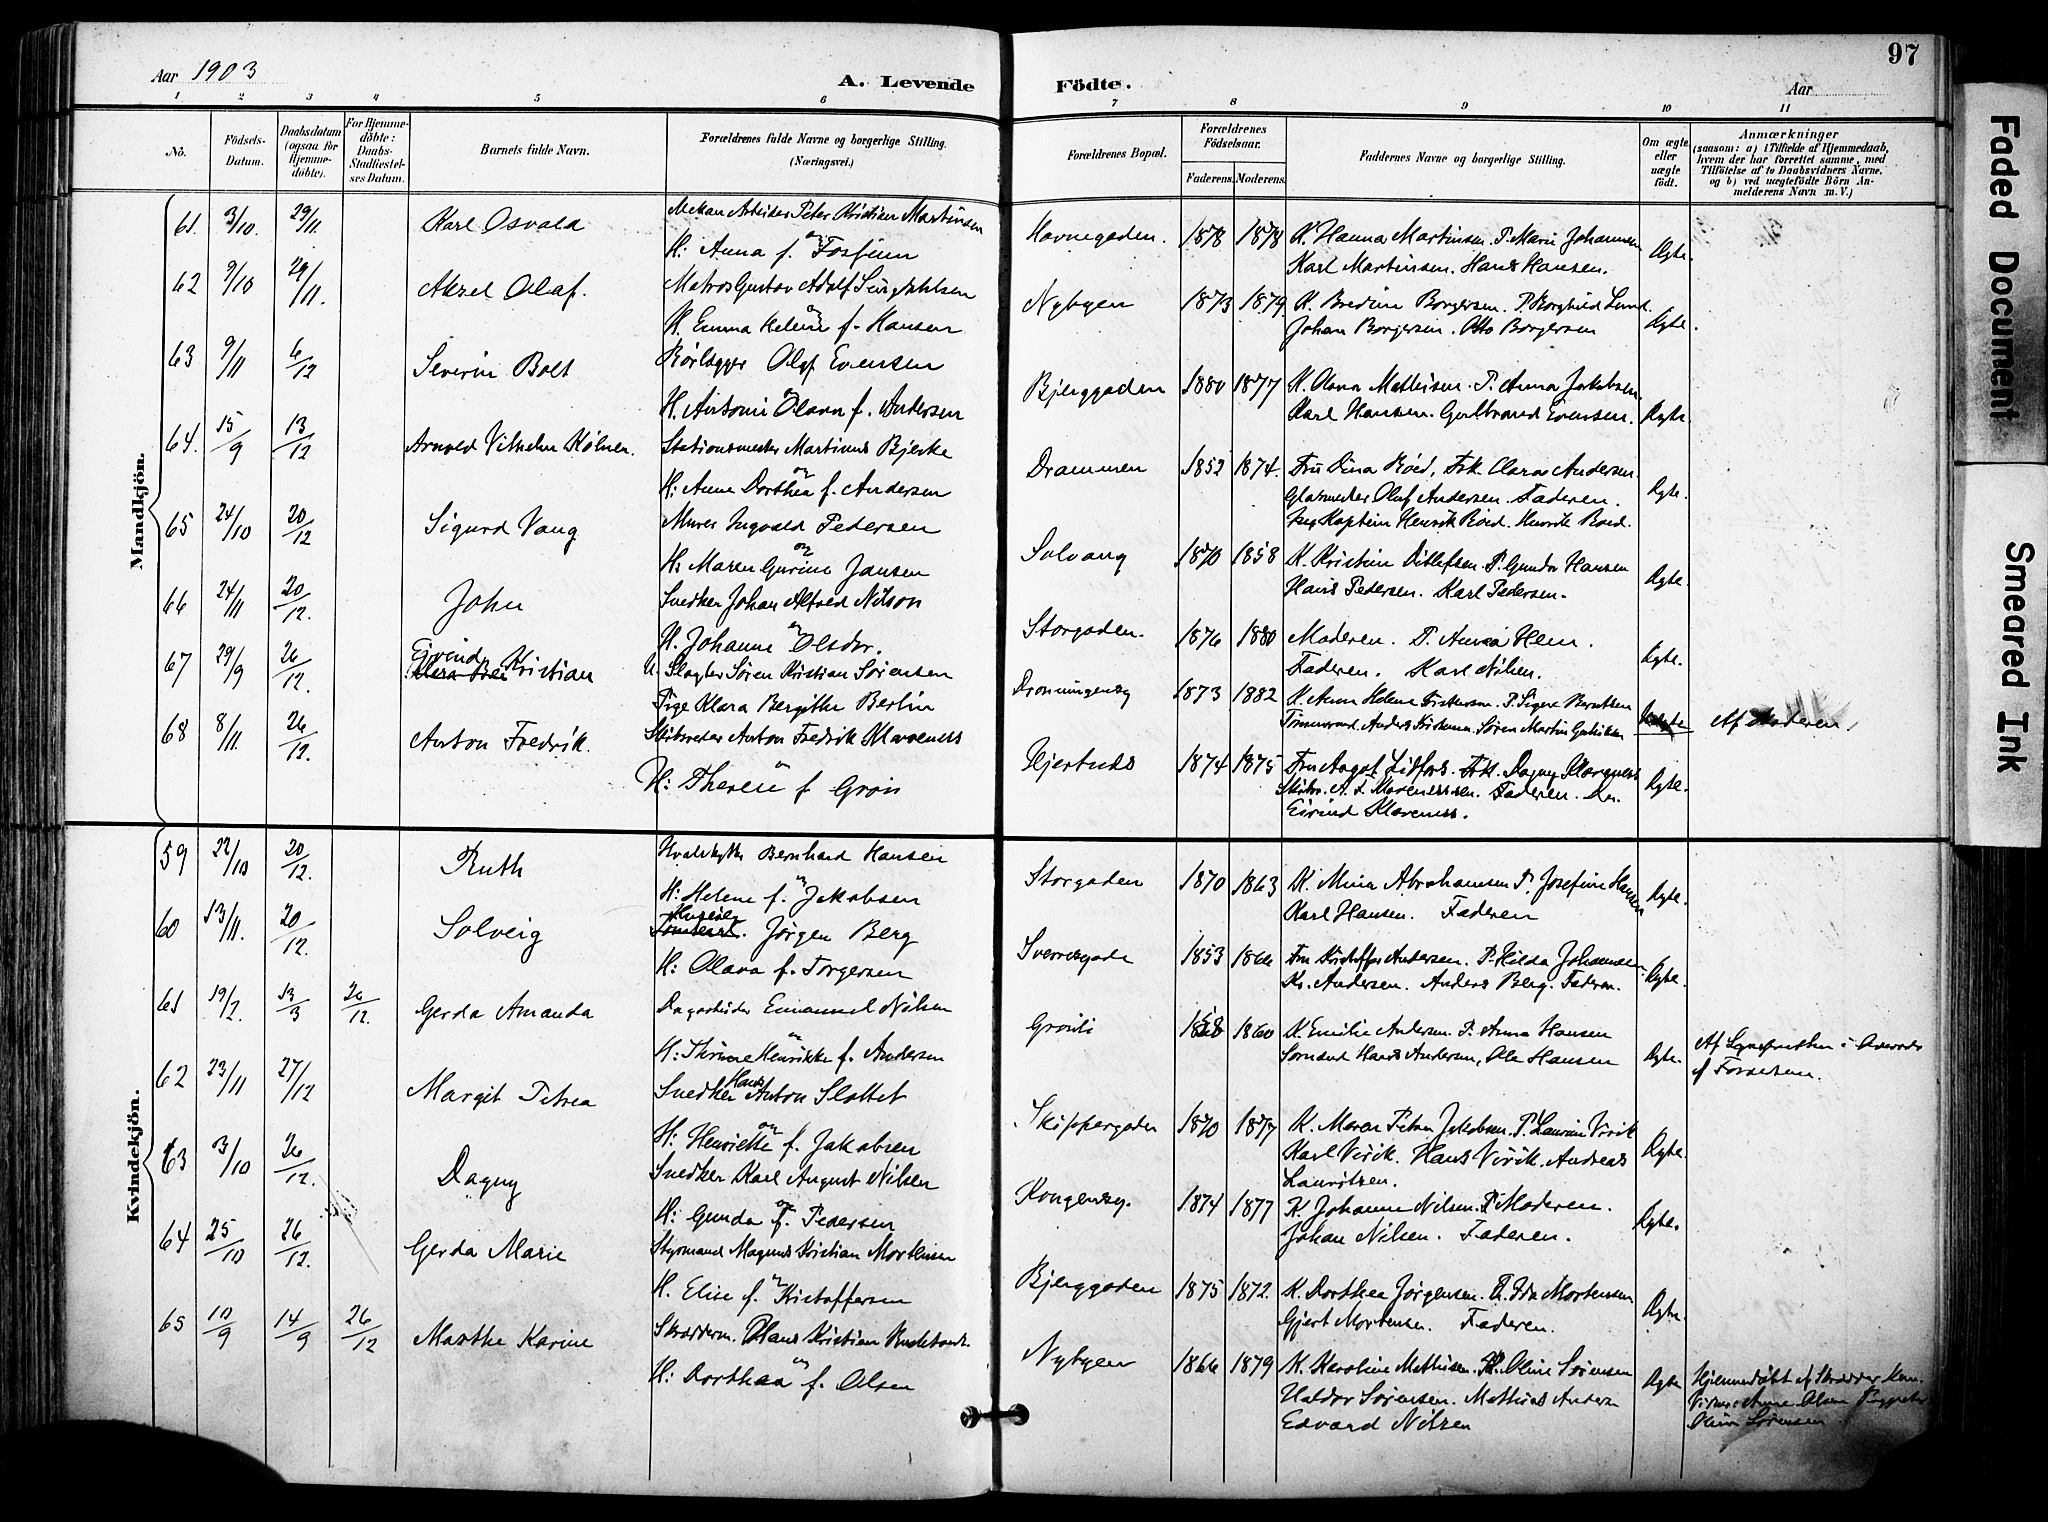 Aar 1903
A. Levende Födte.
Aar
97
1 2 3 4 5 6 7 8 9 10 11
Nô.
Födsels-Datum.
Daabsdatum (ogsaa for Hjemmedöbte).
For Hjemmedöbte: Daabs-Stadfæstelses Datum.
Barnets fulde Navn.
Forældrenes fulde Navne og borgerlige Stilling. (Næringsvei.)
Forældrenes Bopæl.
Forældrenes Födselsaar.
Faderens. Moderens.
Faddernes Navne og borgerlige Stilling.
Om ægte eller uægte født.
Anmærkninger
(saasom: a) i Tilfælde af Hjemmedaab, hvem der har forrettet samme, med Tilföielse af to Daabsvidners Navne, og b) ved uægtefödte Börn Anmelderens Navn m. V.)
Mandkjön.
61. 3/10. 29/11. Karl Osvald
Mekan Arbeider Peter Kristian Martinsen
og
H: Anna f. Tosfinn
Havnegaden. 1878 1878
K. Hanna Martinsen. P. Marie Johannsen
Karl Martinsen. Hans Hansen.
Ægte.
62 9/10 29/11. Aksel Olaf.
Matros Gustav Adolf
og
H. Emma Helene f. Hansen
Nybyen 1873 1879
K. Bredine Borgersen. P. Borghild Lund
Johan Borgersen. Otto Borgersen
Ægte.
63 9/11 6/12 Severin Bolt
Rörlegger Olaf Evensen
og
H. Antonie Olava f. Andersen
Bjerggaden 1880 1877
K. Olava Mathisen. P. Anna Jakobsen
Karl Hansen. Gulbrand Evensen.
Ægte.
64. 15/9 13/12 Arnold Vilhelm Holmer.
Stationsmester Martinus Bjerke
og
H: Anne Dorthea f. Andersen
Drammen 1852 1874.
Fru Dina Röed, Frk. Clara Andersen
Glasmester Olaf Andersen. Faderen.
Kaptein Henrik Röed. Henrik Roed.
Ægte.
65 24/10 20/12 Sigurd Vang
Murer Ingvald Pedersen
og
H: Maren Gurine Jansen
Solvang 1870 1858
K. Kristine Ditlefsen. P. Gunda Hansen
Hans Pedersen. Karl Pedersen.
Ægte.
66 24/11 20/12. John
Snedker Johan Alfred Nilson
og
H. Johanne Olsdr.
Storgaden. 1876 1880
Moderen. P. Anna Hem.
Faderen. Karl Nilsen.
Ægte.
67 29/9 26/12. Eivind Kristian
U. Slagter Søren Kristian Sørensen
Pige Klara Bergithe Berlin
Dronningensg 1873 1882
K. Anna Helene P. Signe Berntsen
Tömmermand Anders Kristensen Søren Martin
Uægte
Af Moderen.
68 8/11. 26/12. Anton Fredrik.
Skibsreder Anton Fredrik Klaveness
og
H: Therese f Grøn
Hjertnes 1874 1875
Fru Aagot Lidfors. Frk. Dagny Klaveness
Skibsr. A. F. Klavenessen. Faderen. Dr.
Eivind Klaveness.
Ægte.
Kvindekjön.
59 22/10 20/12. Ruth
Hvalskytter Bernhard Hansen
og
H: Helene f. Jakobsen
Storgaden 1870 1863
K. Mina Abrahamsen P. Josefine Hansen
Karl Hansen. Faderen
Ægte.
60 13/11. 20/12. Solveig
Jörgen Berg
H: Olava f. Torgersen
Sverresgade 1853 1866
Fru Kristoffer Andersen. P. Hilda Johannsen
Kr. Andersen. Anders Berg. Faderen.
Ægte.
61 19/2. 13/3 26/12. Gerda Amanda
Dagarbeider Emanuel Nilsen
og
H: Thrine Henrikke f. Andersen
Grönli 1860
K. Emilie Andersen. P. Anna Hansen
Sømand Hans Andersen, Ole Hansen
Ægte.
Af i
af
62 23/11 27/12 Margit Petrea
Snedker Hans Anton Slottet
og
H: Henriette f. Jakobsen
Skippergaden 1870 1877
K. Maren Petrea Jakobsen. P. Laurine Virik
Karl Virik. Hans Virik. Andreas
Lauritsen.
Ægte.
63 3/10 26/12. Dagny
Snedker Karl August Nilsen
og
H: Gunda f. Pedersen
Kongensg. 1874 1877
K. Johanne Nilsen. P. Moderen.
Johan Nilsen. Faderen.
Ægte.
64 25/10 26/12. Gerda Marie
Styrmand Magnus Kristian Mortensen
og
H. Elise f. Kristoffersen
Bjerggaden 1875 1872.
K. Dorthea Jørgensen. P. Ida Mortensen
Gjert Mortensen. Faderen.
Ægte
65 10/9 14/9 26/12 Marthe Karine
Skrædderm. Hans Kristian
og
H: Dorthea f. Olsen
Nybyen 1866 1879
K. Karoline Mathisen. P. Oline Sørensen
Haldor Sørensen. Mathias Anders
Edvard Nilsen
Ægte
Hjemmedøbt af Skrædder
Vidner: Anne Olsen
Oline Sørensen
Faded Document
Smeared Ink